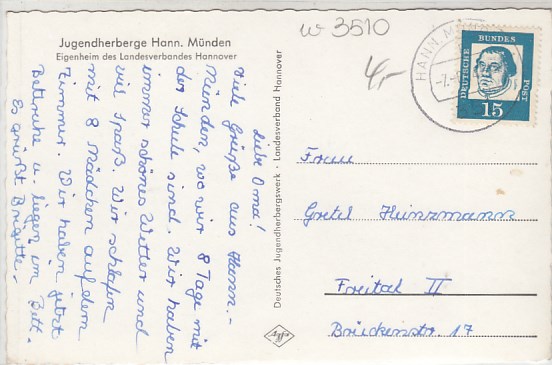 w 3510
4,-
Jugendherberge Hann. Münden
Eigenheim des Landesverbandes Hannover
Liebe Oma!
Viele Grüße aus Hann.-
Münden, wo wir 8 Tage mit
der Schule sind. Wir haben
immer schönes Wetter und
viel Spaß. Wir schlafen
mit 8 Mädchen auf dem
Zimmer. Wir haben jetzt
Bettruhe u. liegen im Bett.
Es grüßt Brigitte.
Deutsches Jugendherbergswerk · Landesverband Hannover
Agfa
HANN. MÜNDEN
DEUTSCHE BUNDESPOST
15
Frau
Gretel Heinzmann
Freital II
Brückenstr. 17